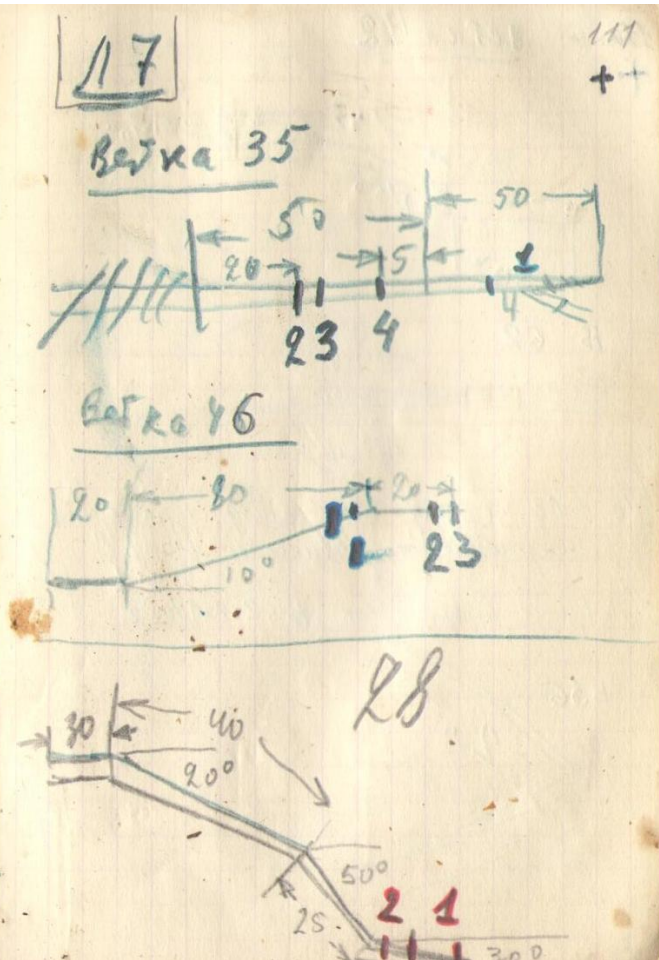 117
Л7
+ +
Ветка 35
50 50
20 5 1
4
2 3 4
Ветка 46
20 80 20
10°
2 3
28
30 40
20°
50°
25 2 1
30°